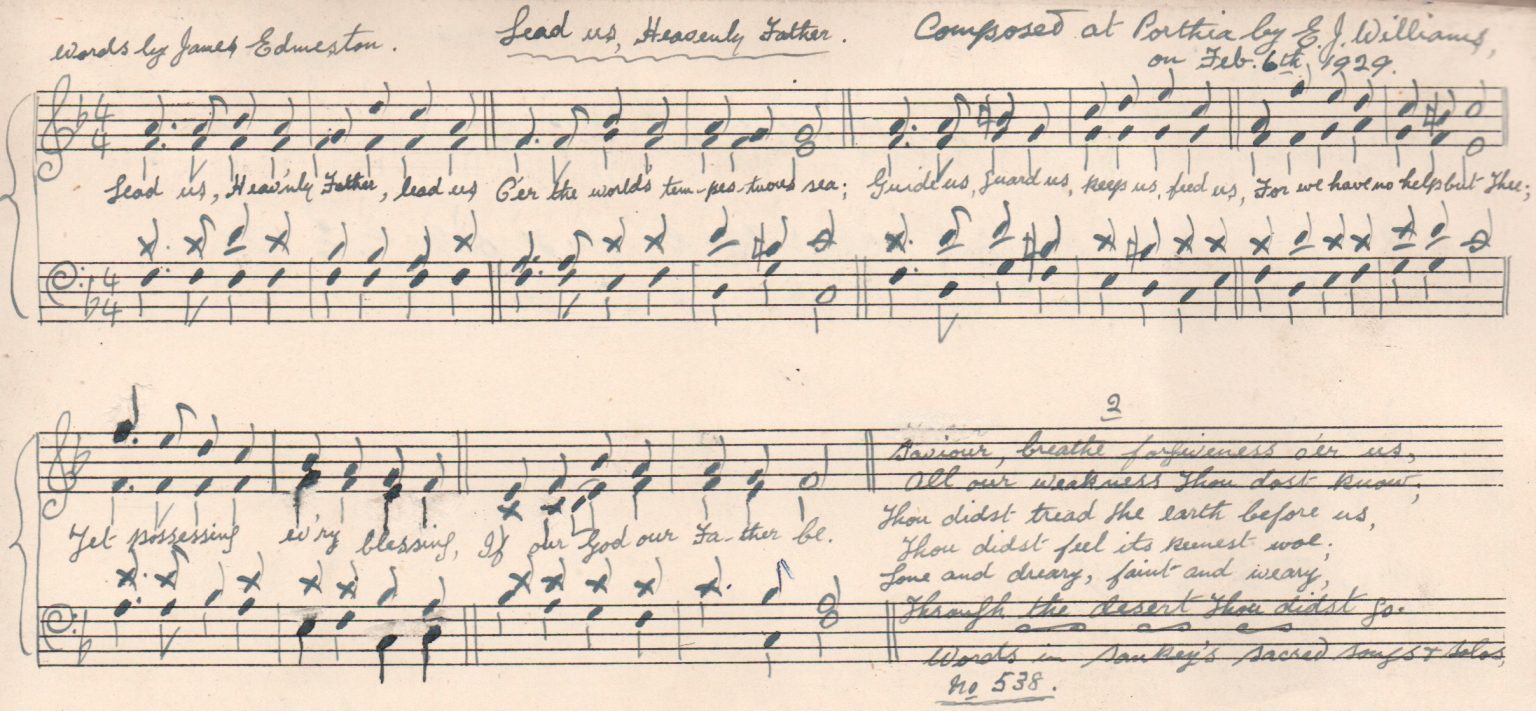 Words by James Edmeston.
Lead us, Heavenly Father.
Composed at Porthia by E. J. Williams,
on Feb. 6th, 1929.
Lead us, Heav'nly Father, lead us O'er the world's tem-pes-tuous sea; Guide us, guard us, keep us, feed us, For we have no help but Thee;
Yet possessing ev'ry blessing, If our God our Fa-ther be.
2
Saviour, breathe forgiveness o'er us,
All our weakness Thou dost know;
Thou didst tread the earth before us,
Thou didst feel its keenest woe;
Lone and dreary, faint and weary,
Through the desert Thou didst go.
Words in Sankey's Sacred Songs & Solos,
No 538.